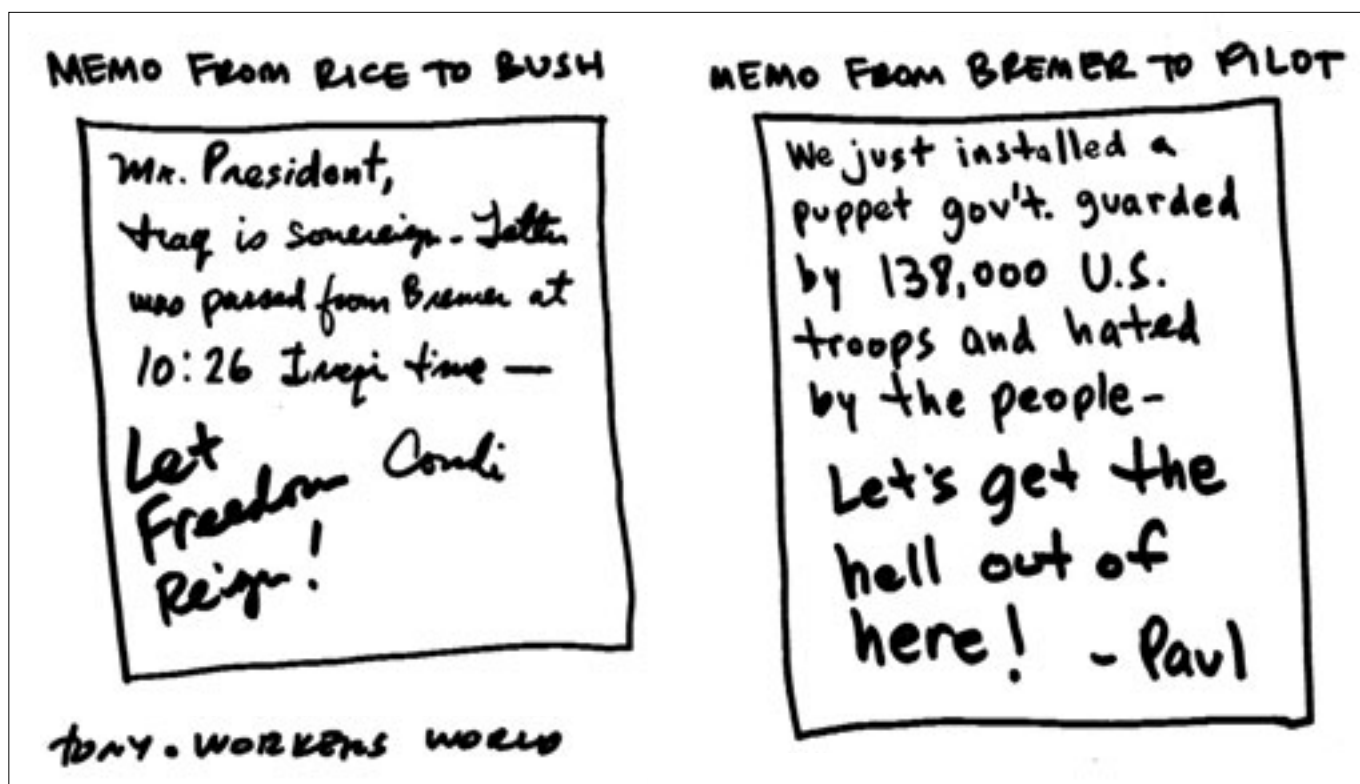 MEMO FROM RICE TO BUSH
Mr. President,
Iraq is sovereign. Letter
was passed from Bremer at
10:26 Iraqi time —
Let
Freedom Condi
Reign!
TONY. WORKERS WORLD
MEMO FROM BREMER TO PILOT
We just installed a
puppet gov't. guarded
by 138,000 U.S.
troops and hated
by the people-
Let's get the
hell out of
here! - Paul